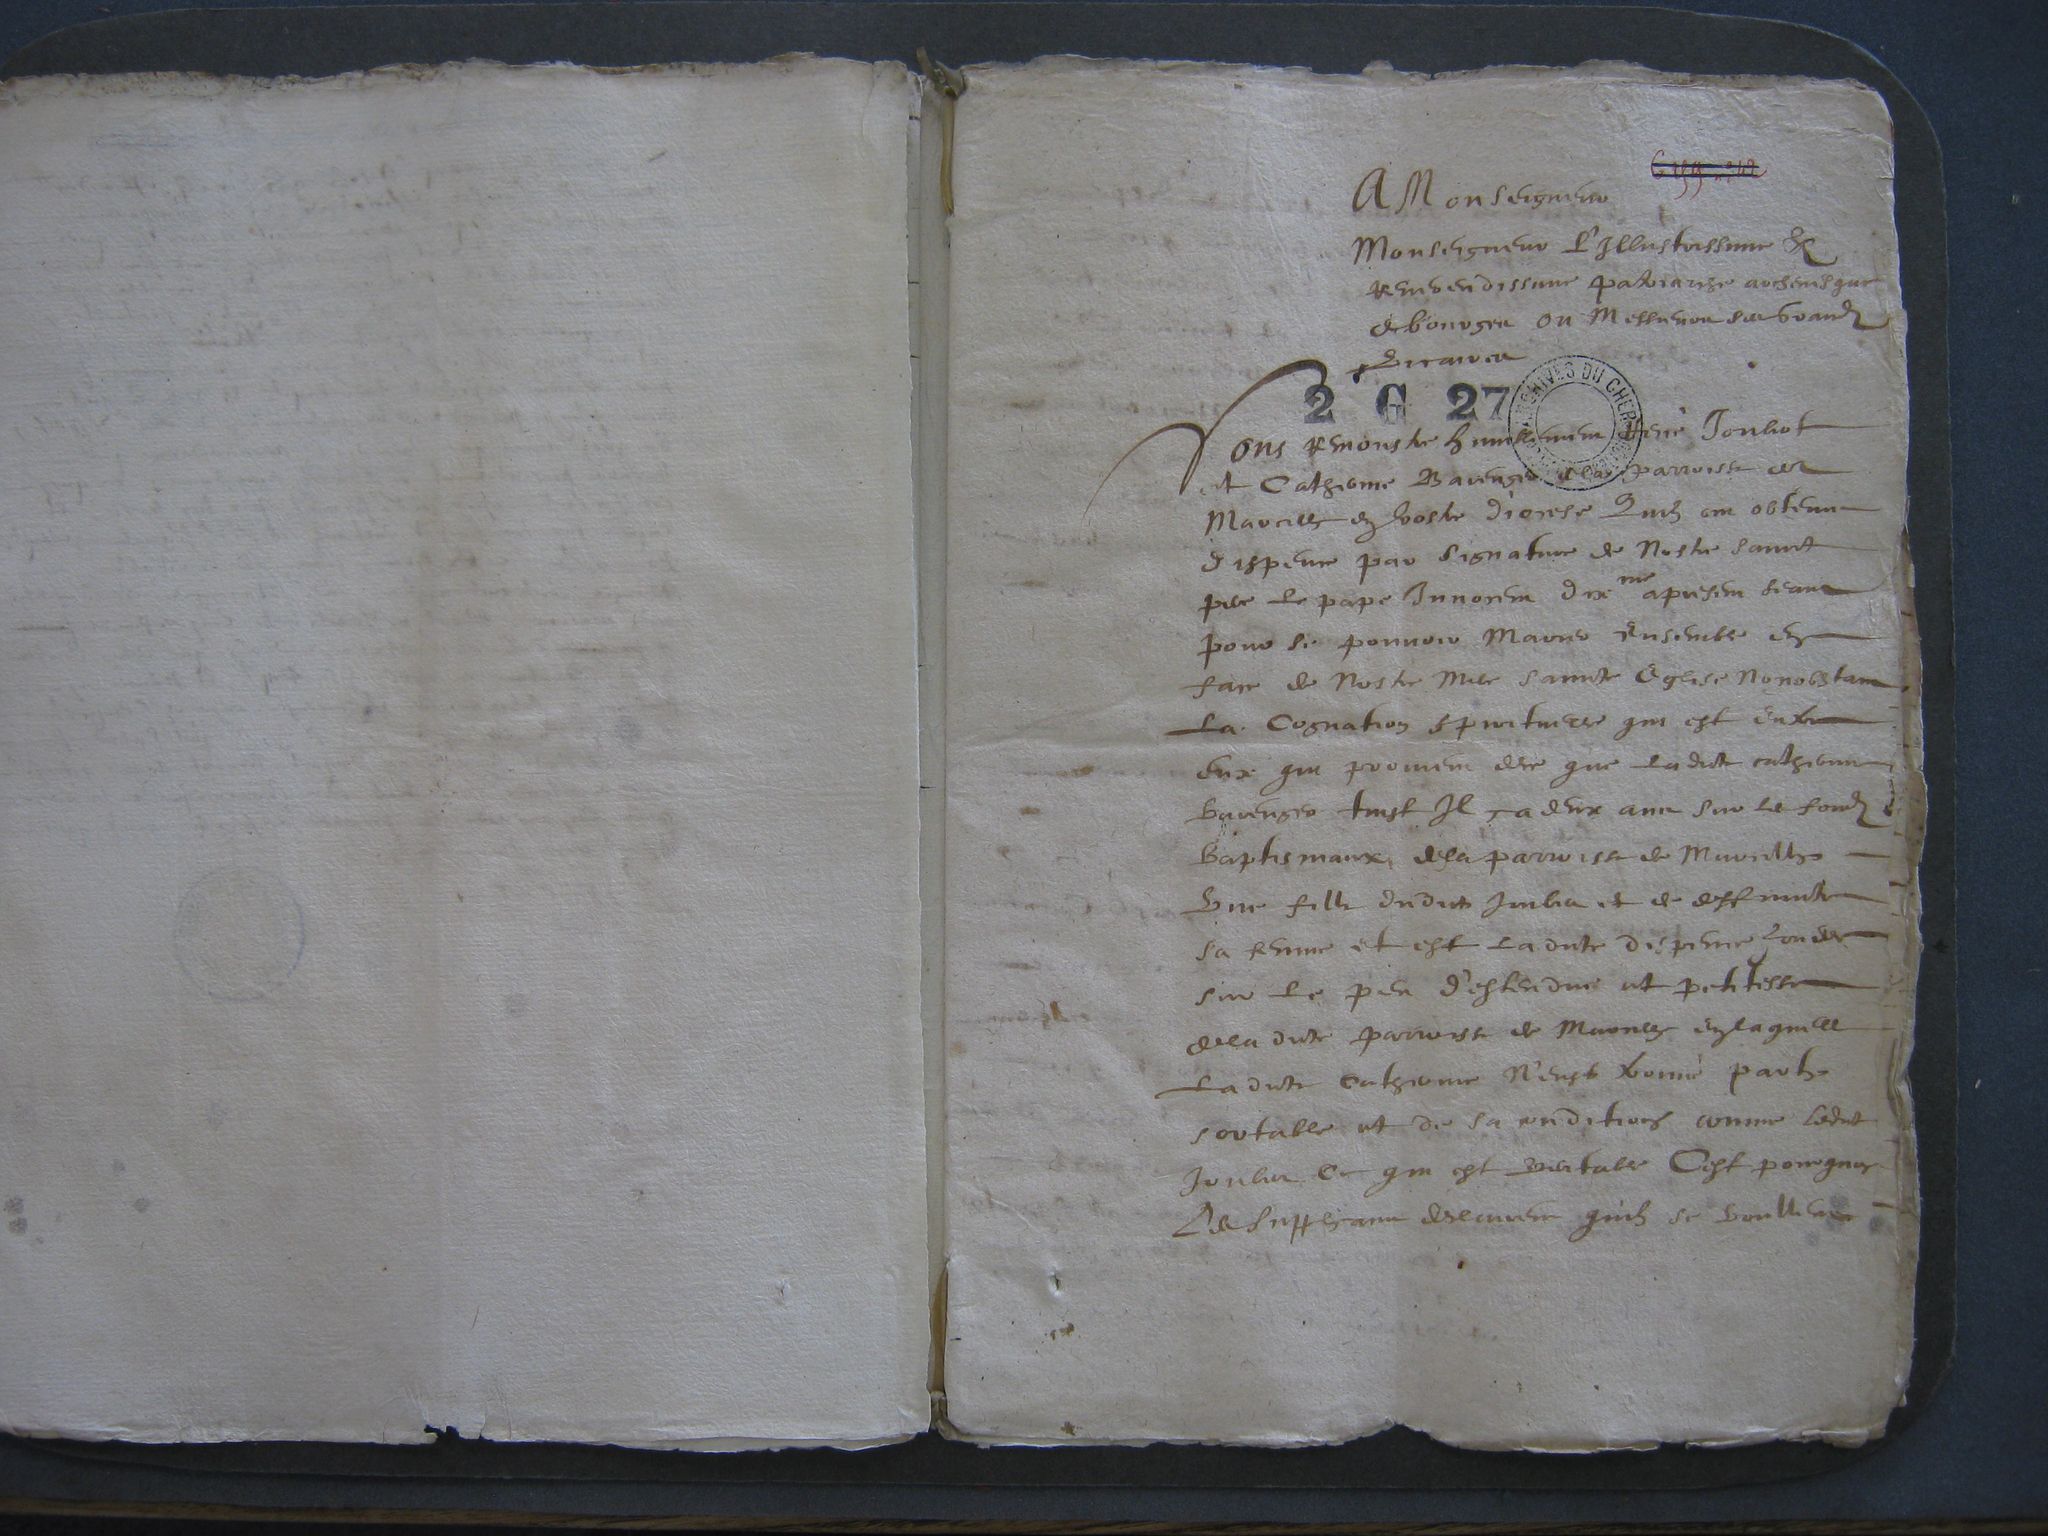 A Monseigneur
Monseigneur L'Illustrissime &
Reverendissime patriarche archevesque
de bourges ou Messieurs ses Grandz
Vicaires
2 G 27
ARCHIVES DU CHER
Vous Remonstre humblement René Joulict
et Catherine Barenger de la parroisse de
Marcilly en vostre diocese Quilz ont obtenu
dispence par signature de Nostre sainct
pere Le pape Innocent dixme apresent seant
pour se pouvoir Marier Ensemble en
face de Nostre Mere saincte Eglise Nonobstant
La Cognation spirituelle qui est Entre
eux qui provient de ce que Ladicte catherine
Barenger tinst Il y a deux ans sur les fondz
Baptismaux de la parroisse de Marcilly
Une fille dudict et de deffuncte
sa femme et est Ladicte dispence fondée
sur Le peu d'estendue et petitesse
de la dicte parroisse de Marcilly en laquelle
Ladicte Catherine N'eust trouvé party
sortable et de sa condition comme ledict
Ce qui est veritable C'est pourquoy
Les supplians desireroient quilz se